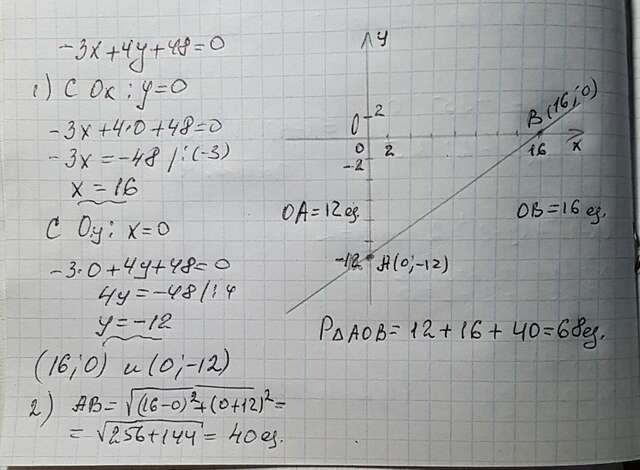 -3x+4y+48=0
1) С Ox: y=0
-3x+4·0+48=0
-3x=-48 |:(-3)
x=16
С Oy: x=0
-3·0+4y+48=0
4y=-48 |:4
y=-12
(16;0) и (0;-12)
2) AB=√(16-0)²+(0+12)²=
=√256+144=40ед.
y
2
B(16;0)
0
0 2 16 x
-2
OA=12ед
OB=16ед.
-12 A(0;-12)
P△AOB=12+16+40=68ед.